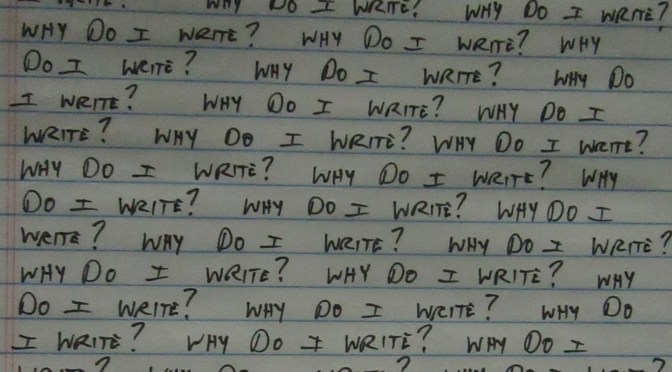 WRITE? WHY DO I WRITE? WHY DO I WRITE?
WHY DO I WRITE? WHY DO I WRITE? WHY
DO I WRITE? WHY DO I WRITE? WHY DO
I WRITE? WHY DO I WRITE? WHY DO I
WRITE? WHY DO I WRITE? WHY DO I WRITE?
WHY DO I WRITE? WHY DO I WRITE? WHY
DO I WRITE? WHY DO I WRITE? WHY DO I
WRITE? WHY DO I WRITE? WHY DO I WRITE?
WHY DO I WRITE? WHY DO I WRITE? WHY
DO I WRITE? WHY DO I WRITE? WHY DO
I WRITE? WHY DO I WRITE? WHY DO I
WRITE? WHY DO I WRITE? WHY DO I WRITE?